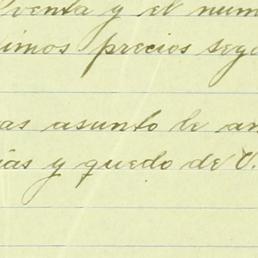 venta y el num
imos precios seg
as asunto le an
ias y quedo de V.